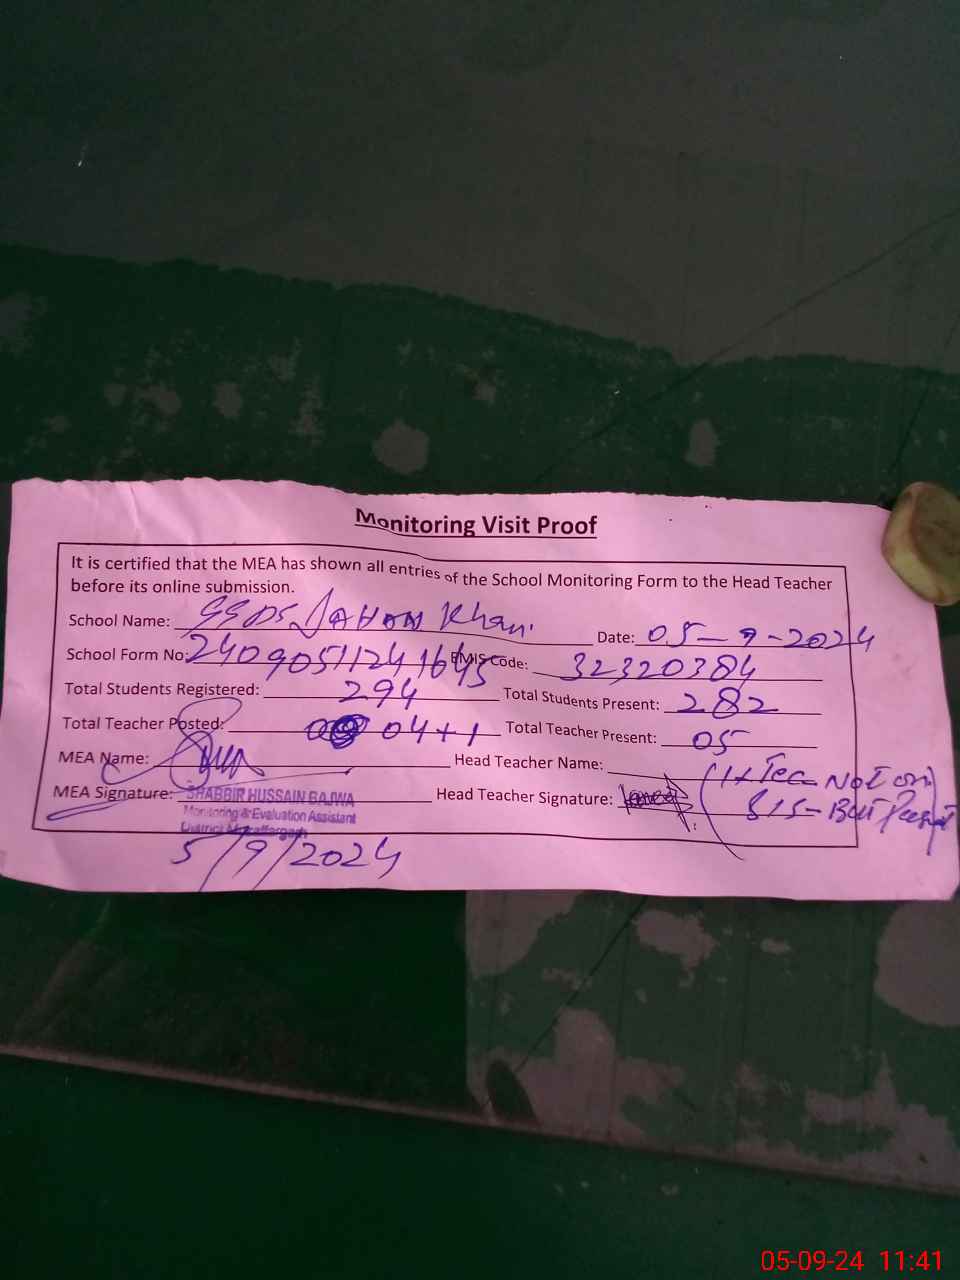 Monitoring Visit Proof
It is certified that the MEA has shown all entries of the School Monitoring Form to the Head Teacher
before its online submission.
School Name: Khan. Date: 05-9-2024
School Form No: 2409051124 1645 EMIS Code: 32320384
Total Students Registered: 294 Total Students Present: 282
Total Teacher Posted: 04+1 Total Teacher Present: 05
MEA Name: Head Teacher Name:
(1x Tec Not on
MEA Signature: SHABBIR HUSSAIN BAJWA Head Teacher Signature:
SIS-
Monitoring & Evaluation Assistant
District Muzaffargarh
5/9/2024
05-09-24 11:41